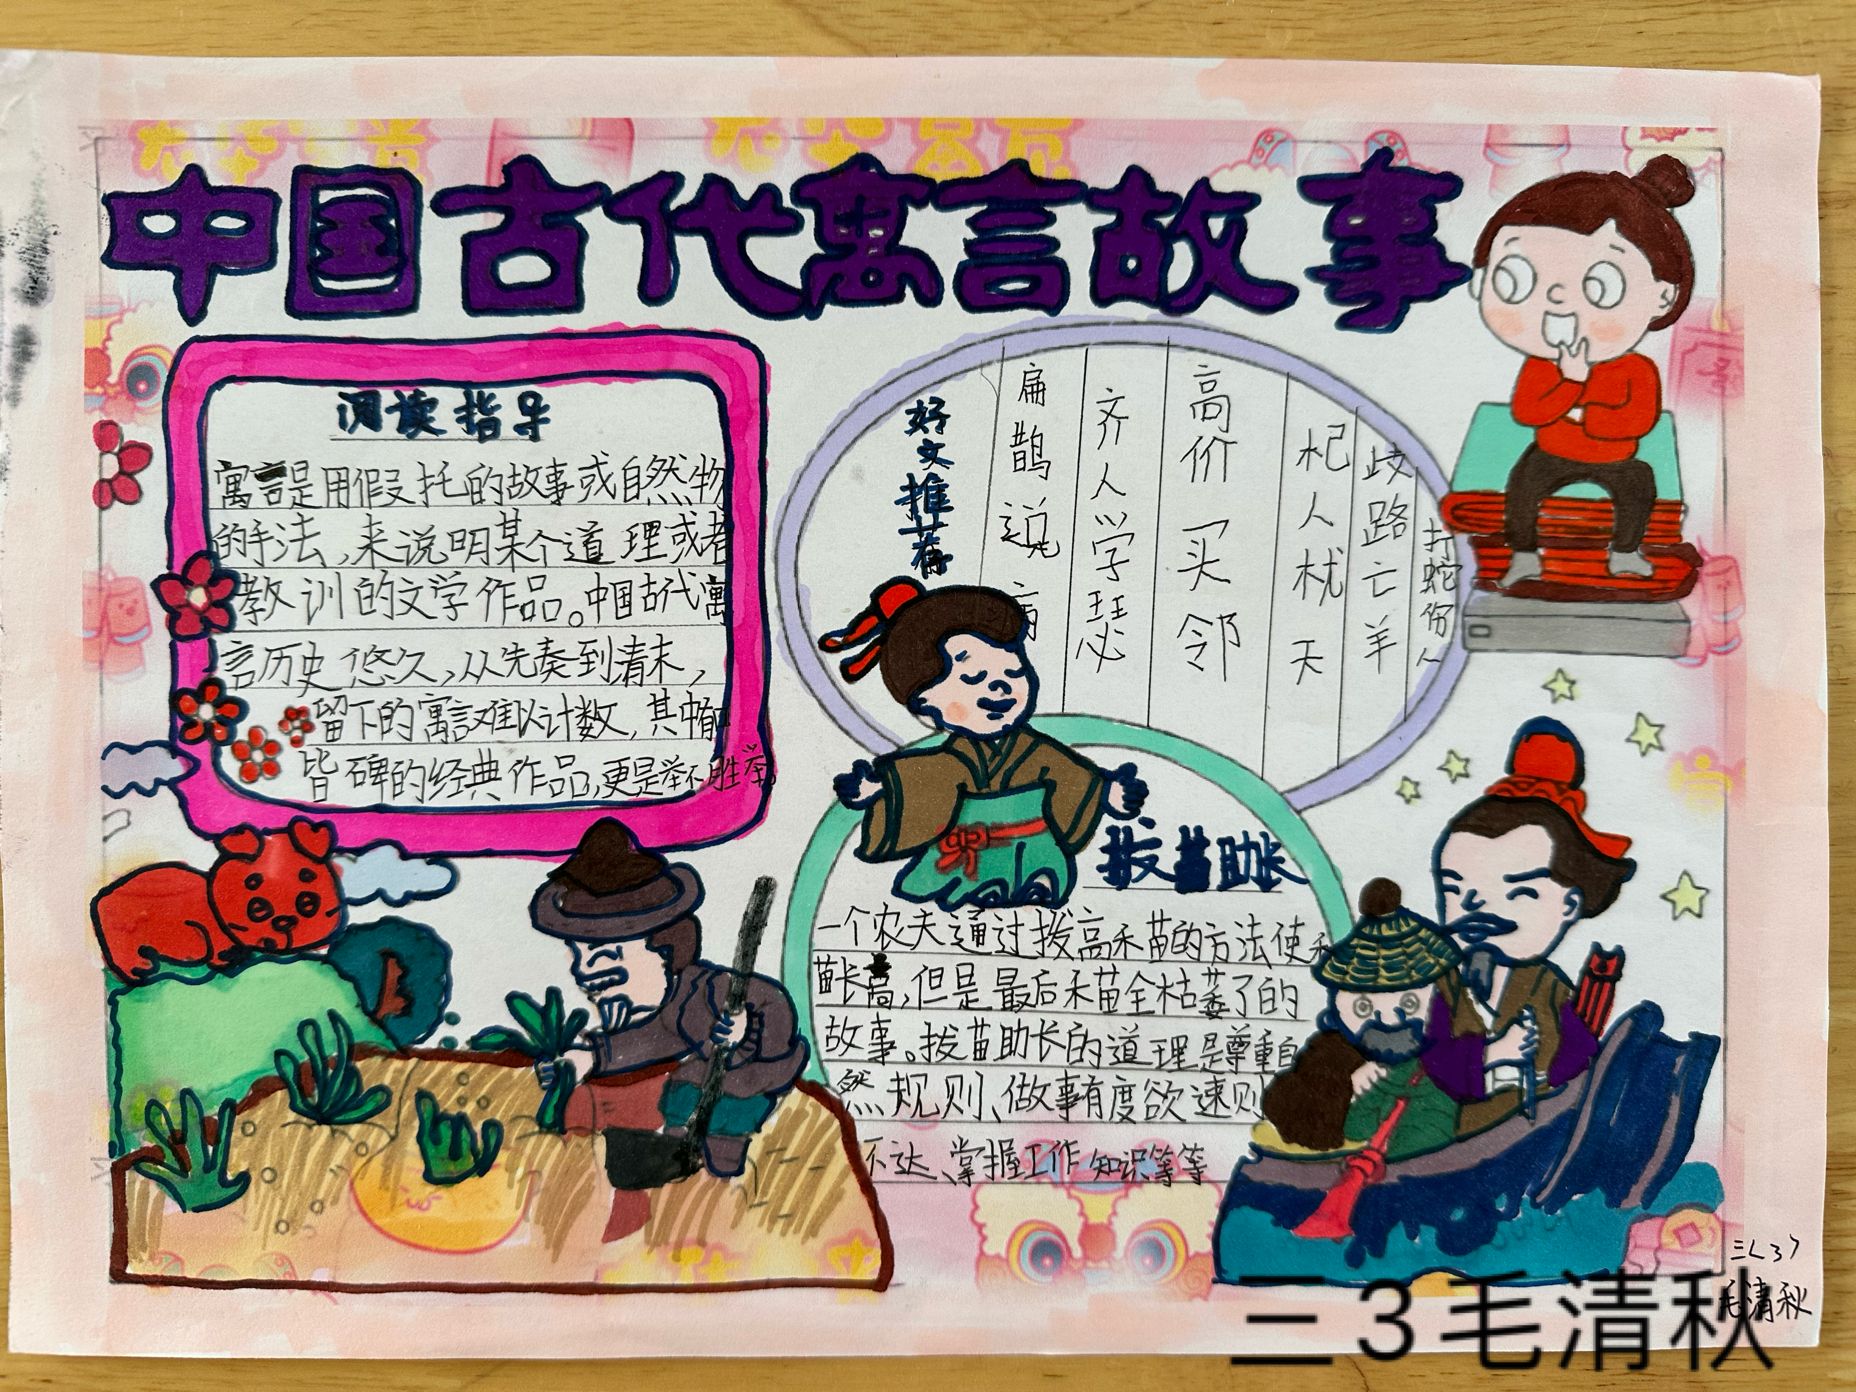 中国古代寓言故事
阅读指导
寓言是用假托的故事或自然物
的手法,来说明某个道理或者
教训的文学作品。中国古代寓
言历史悠久,从先秦到清末,
留下的寓言难以计数,其中
皆碑的经典作品,更是举不胜举。
好文推荐
扁鹊说病
齐人学瑟
高价买邻
杞人忧天
歧路亡羊
打蛇
拔苗助长
一个农夫通过拨高禾苗的方法使禾
苗长高,但是最后禾苗全枯萎了的
故事。拔苗助长的道理是尊重自
然规则、做事有度欲速则
不达、掌握工作知识等等
三<3>
毛清秋
三3毛清秋